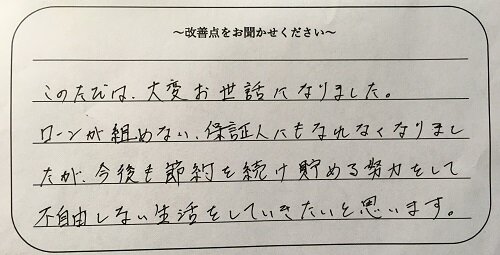 ～改善点をお聞かせください～
このたびは、大変お世話になりました。
ローンが組めない、保証人にもなれなくなりまし
たが、今後も節約を続け貯める努力をして
不自由しない生活をしていきたいと思います。